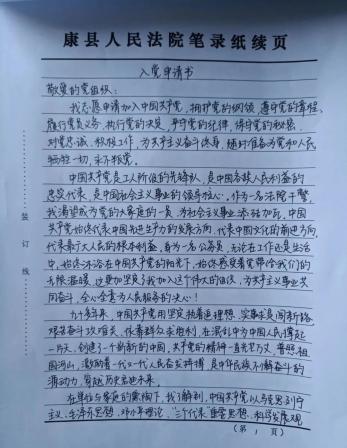 康县人民法院笔录纸续页
入党申请书
敬爱的党组织:
我志愿申请加入中国共产党,拥护党的纲领,遵守党的章程,
履行党员义务,执行党的决定,严守党的纪律,保守党的秘密,
对党忠诚,积极工作,为共产主义奋斗终身,随时准备为党和人民
牺牲一切,永不叛党。
中国共产党是工人阶级的先锋队,是中国各族人民利益的
忠实代表,是中国社会主义事业的领导核心。作为一名法院干警,
我渴望成为党的大家庭的一员,为社会主义事业添砖加瓦,中国
共产党始终代表中国先进生产力的发展方向,代表中国文化的前进方向,
代表最广大人民的根本利益,身为一名公务员,无论在工作还是生活
中,始终沐浴在中国共产党的阳光下,始终感受着党带给我们的
无限温暖,这更加坚定了我加入这个伟大的团体,为共产主义事业共
同奋斗,全心全意为人民服务的决心!
九十春年来,中国共产党用坚定执着追理想,实事求是闯新路
艰苦奋斗攻难关,依靠群众求胜利,在混乱中为中国人民撑起
一片天,创造了一个崭新的中国,共产党的精神一直光芒万丈,普照祖
国河山,激励着一代又一代人民奋发拼搏,是中华民族不懈奋斗的
源动力,穿越历史启迪未来。
在单位与家庭的熏陶下,我了解到,中国共产党以马克思列宁
主义、毛泽东思想、邓小平理论、“三个代表”重要思想、科学发展观
装订线
(第 1 页)